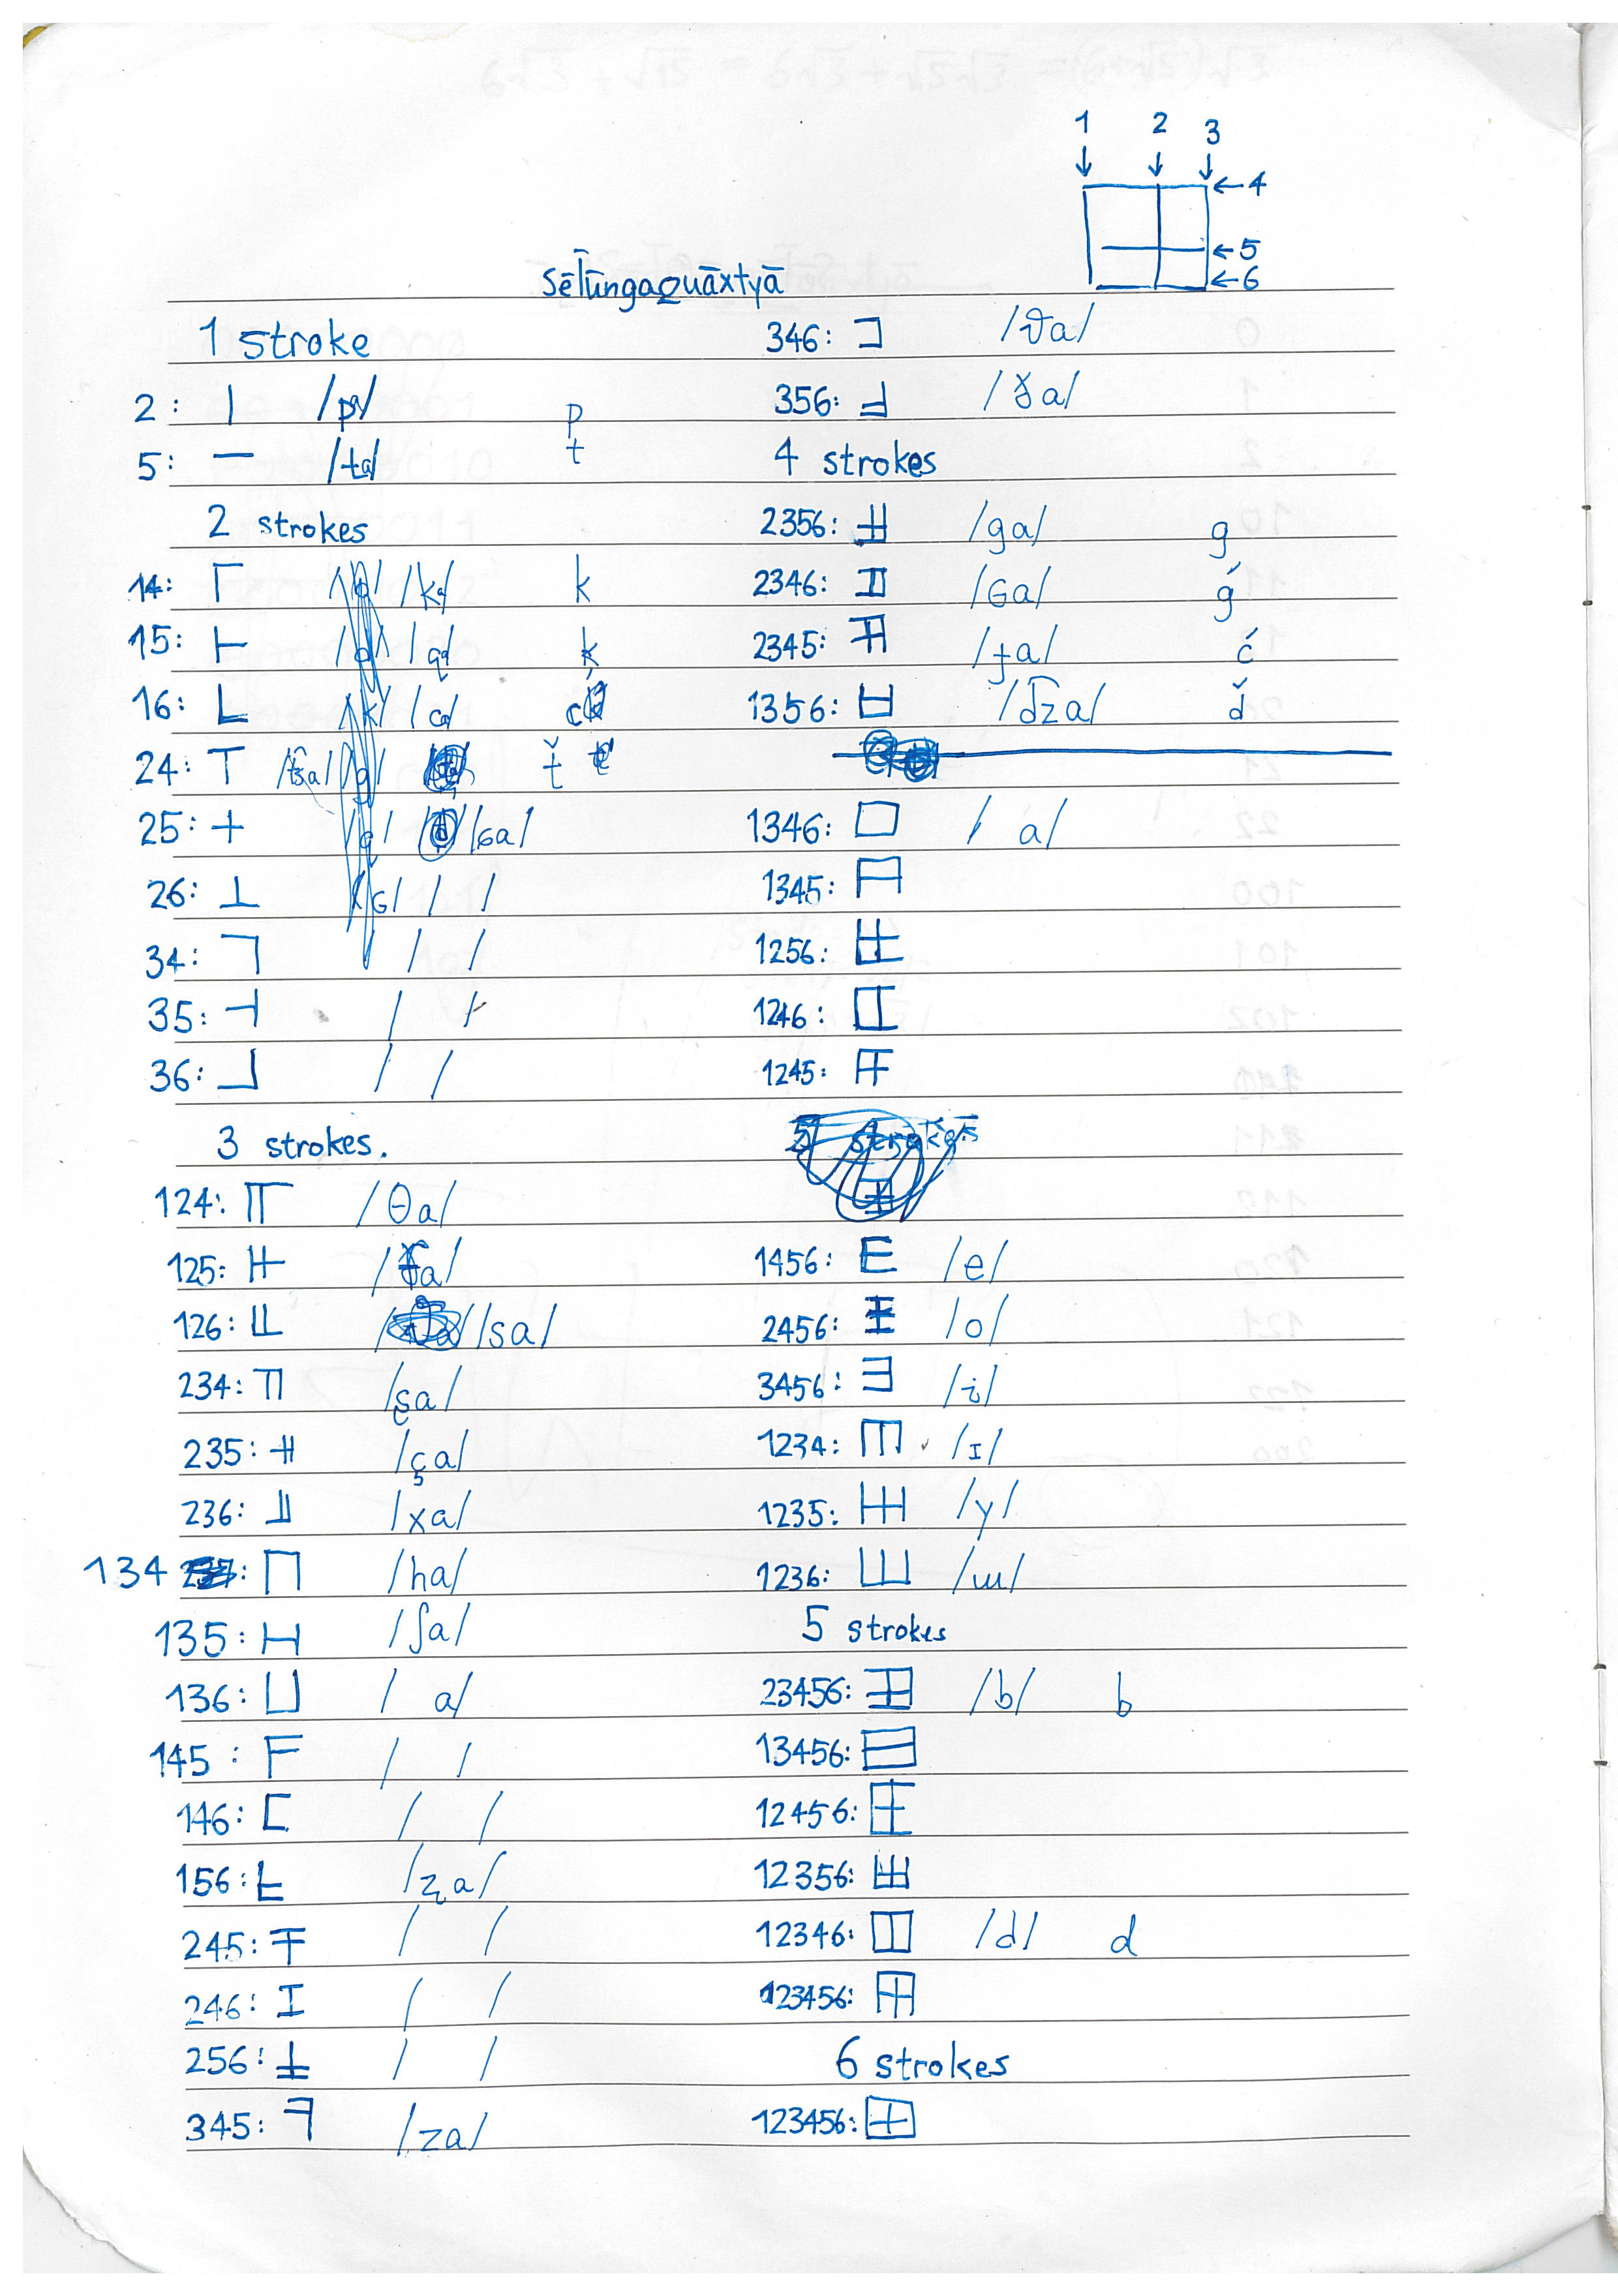 1 2 3
↓ ↓ ↓
←4
←5
←6
1 stroke
2: | /pa/ p
5: — /ta/ t
2 strokes
14: Γ /ka/ k
15: ⊢ /qa/ ḳ
16: L /ca/ c
24: T /t͡sa/ ť
25: + /ɢa/
26: ⊥ / /
34: ⅂ / /
35: ⊣ / /
36: ⅃ / /
3 strokes.
124: /θa/
125:
126: /sa/
234: /ʂa/
235: /ça/
236: /xa/
134: Π /ha/
135: H /ʃa/
136: ⊔ / a/
145: F / /
146: [ / /
156: /ʐa/
245: / /
246: I / /
256: / /
345: /za/
346: ⊐ /ϑa/
356: /ɣa/
4 strokes
2356: /ga/ g
2346: /ɢa/ ǵ
2345: /ɟa/ ć
1356: /d͡za/ ď
1346: □ / a/
1345:
1256:
1246:
1245:
1456: E /e/
2456: 王 /o/
3456: ∃ /i/
1234: /ɪ/
1235: /y/
1236: Ш /ɯ/
5 strokes
23456: /b/ b
13456: 日
12456:
12356:
12346: /d/ d
123456:
6 strokes
123456: 田